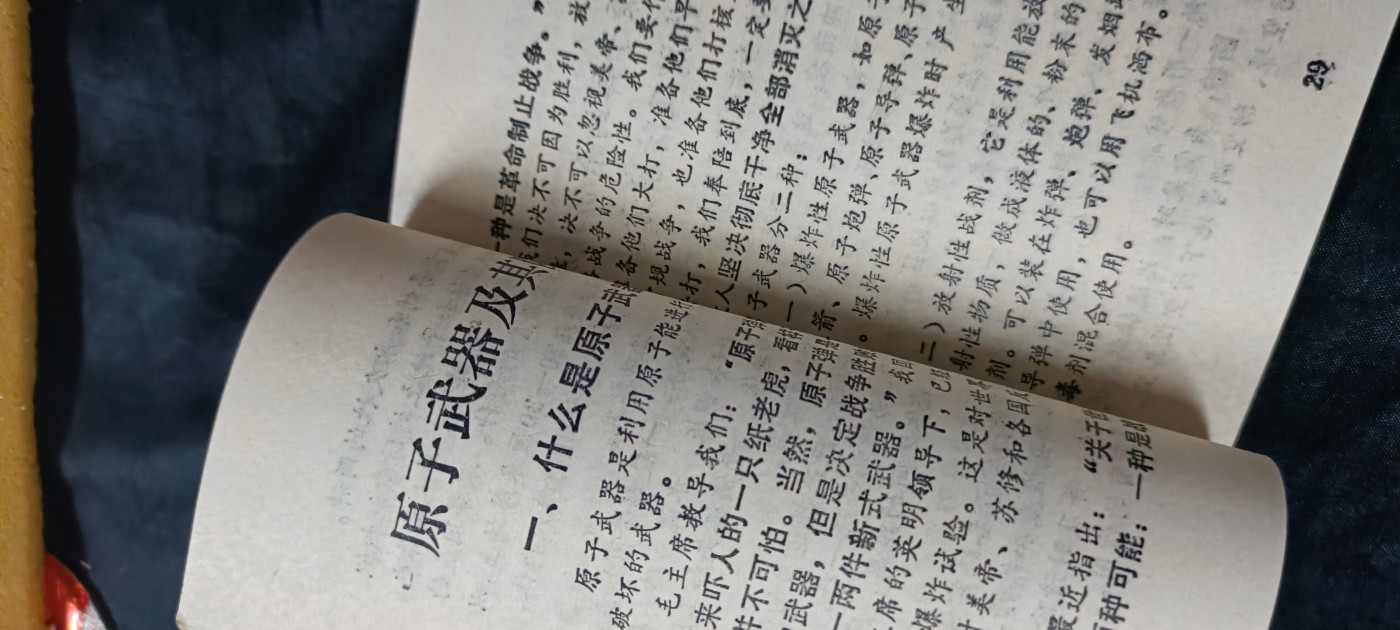 原子武器及其
一、什么是原子武
原子武器是利用原子能进
破坏的武器。
毛主席教导我们：“原子弹
来吓人的一只纸老虎，看
并不可怕。当然，原子弹是
武器，但是决定战争胜败
一两件新式武器。”我国
席的英明领导下，已
爆炸试验。这是对世界
美帝、苏修和各国
最近指出：“关于世
两种可能：一种是
一种是革命制止战争。”
我们决不可因为胜利，放
决不可以忽视美帝、
战争的危险性。我们要
备他们大打，准备他们早
规战争，也准备他们打核
打，我们奉陪到底，一定要
人坚决彻底干净全部消灭之
子武器分二种：
一）爆炸性原子武器，如原子
箭、原子炮弹、原子导弹、原子
。爆炸性原子武器爆炸时产生
二）放射性战剂，它是利用能放
射性物质，做成液体的、粉末的
剂。可以装在炸弹、炮弹、发烟
导弹中使用，也可以用飞机洒布。
毒剂混合使用。
29